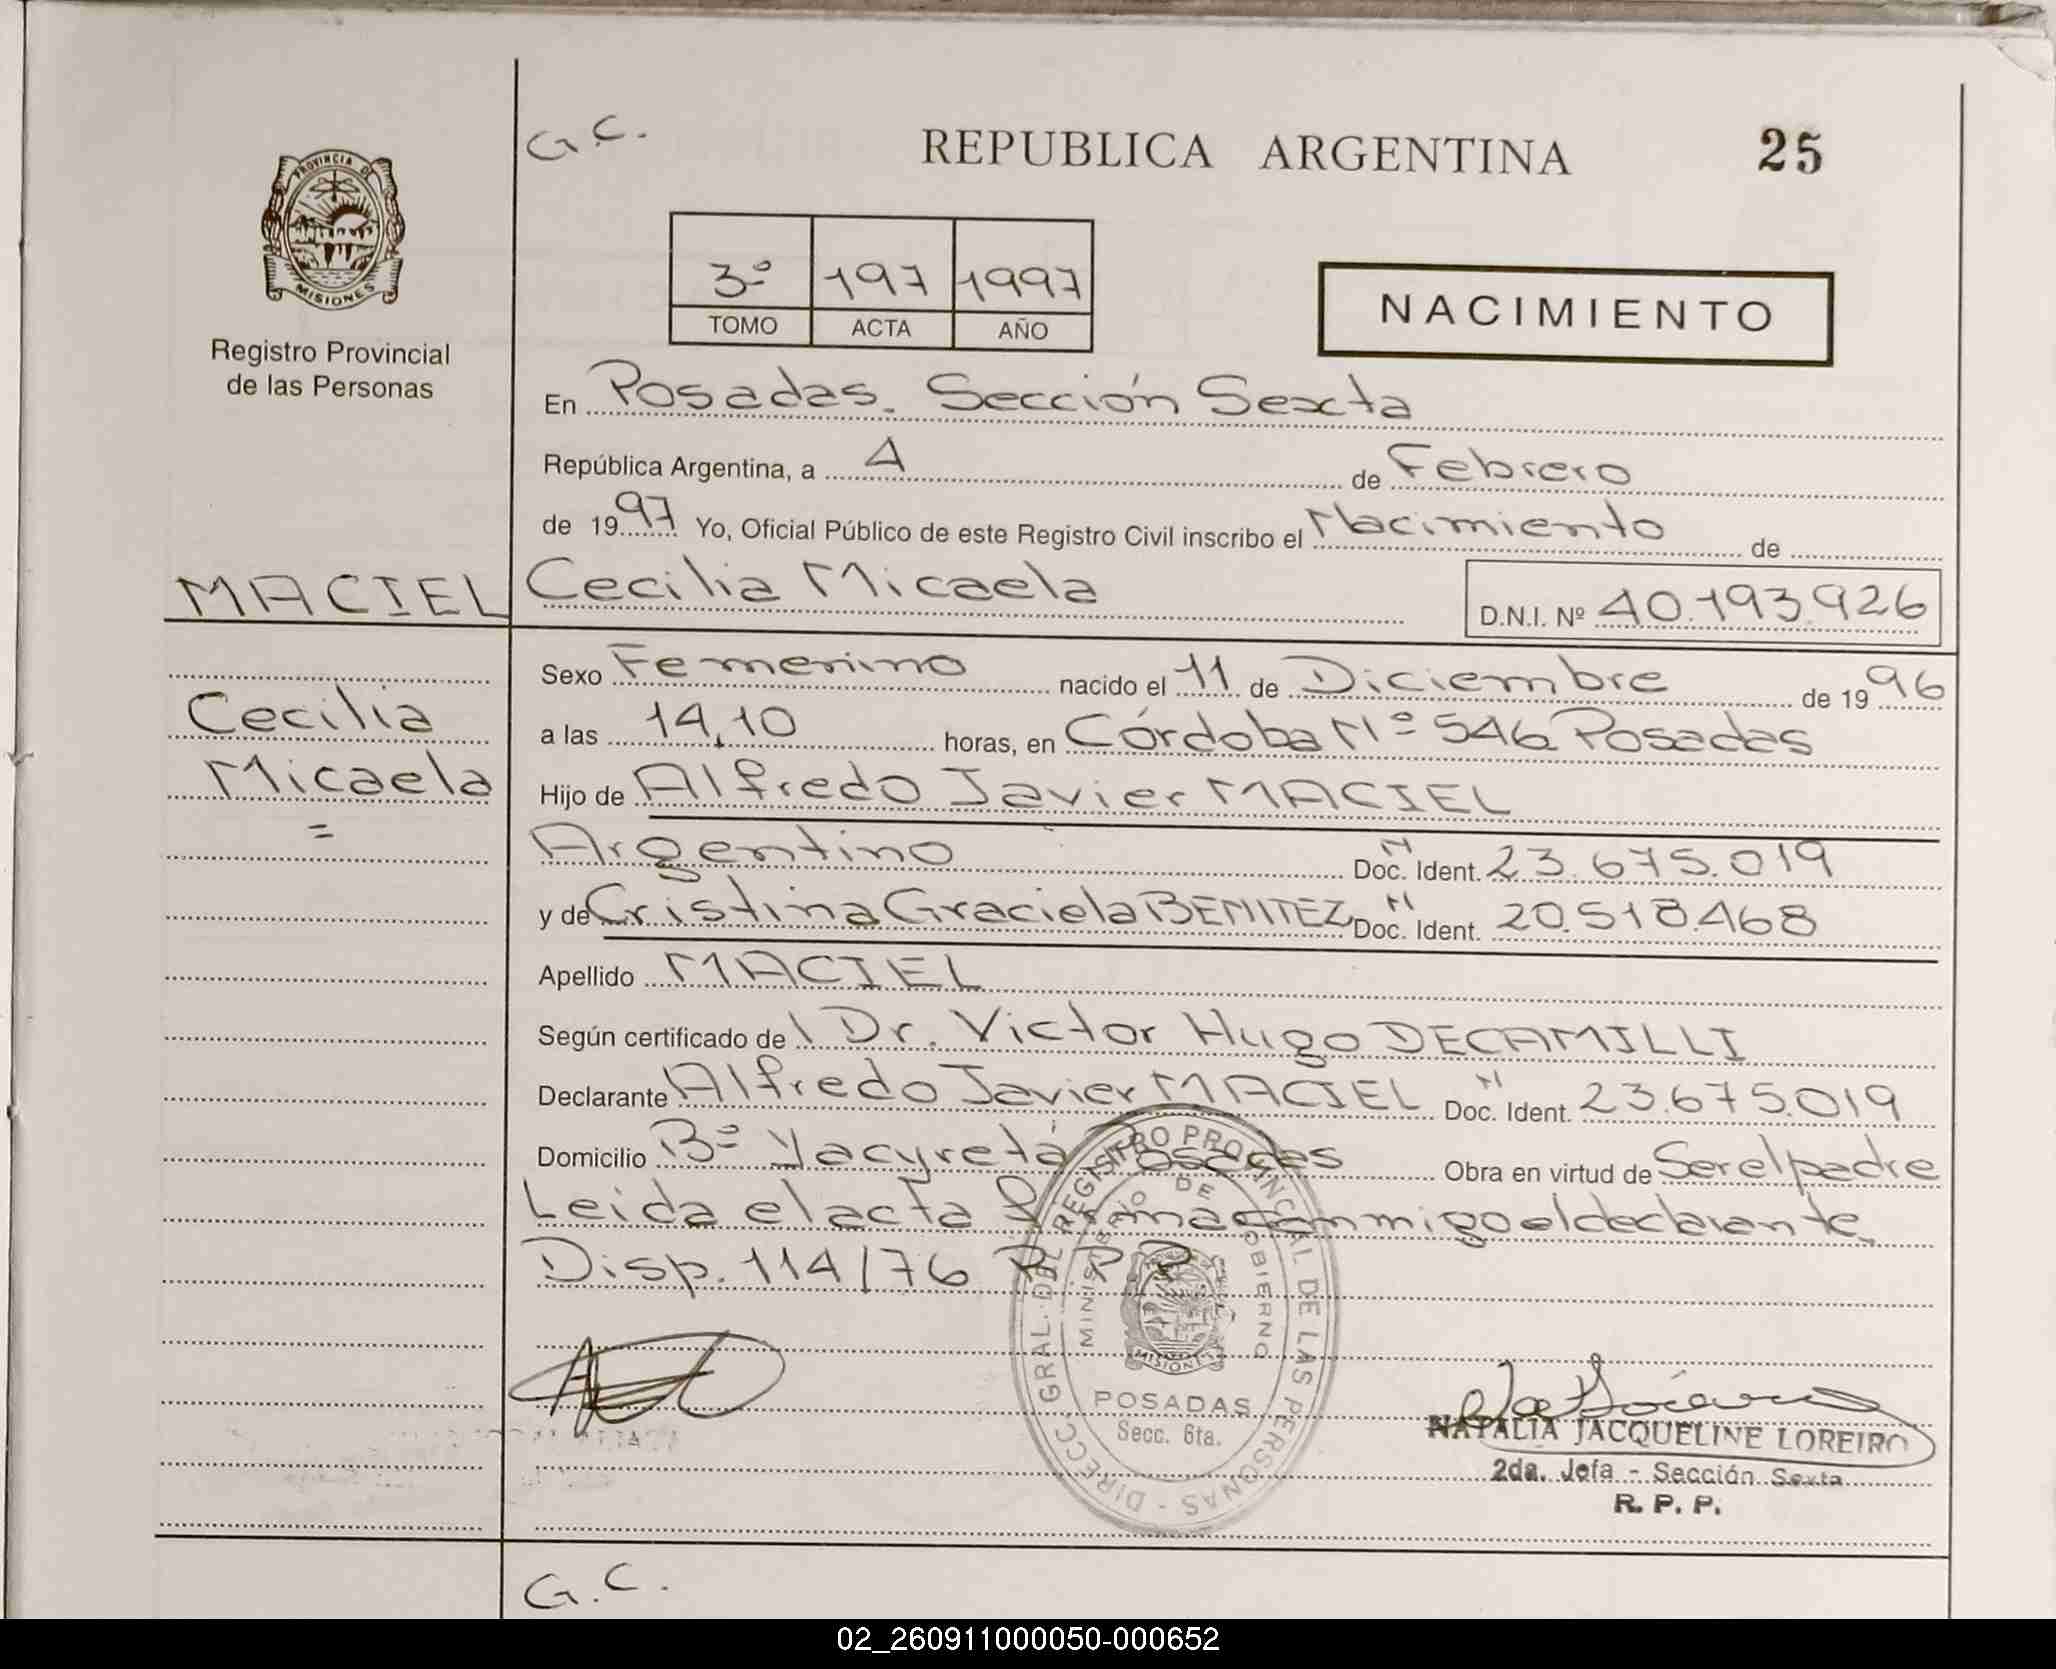 G.C.
REPUBLICA ARGENTINA 25
PROVINCIA DE
MISIONES
Registro Provincial
de las Personas
3º 197 1997
TOMO ACTA AÑO
NACIMIENTO
En Posadas. Sección Sexta
República Argentina, a 4 de Febrero
de 1997 Yo, Oficial Público de este Registro Civil inscribo el Nacimiento de
MACIEL Cecilia Micaela D.N.I. Nº 40.193.926
Cecilia
Micaela
=
Sexo Femenino nacido el 11 de Diciembre de 1996
a las 14,10 horas, en Córdoba Nº 546 Posadas
Hijo de Alfredo Javier MACIEL
Argentino Doc. N Ident. 23.675.019
y de Cristina Graciela BENITEZ Doc. N Ident. 20.518.468
Apellido MACIEL
Según certificado del Dr. Victor Hugo DECAMILLI
Declarante Alfredo Javier MACIEL Doc. N Ident. 23.675.019
Domicilio Bº Yacyretá Posadas Obra en virtud de Ser el padre
Leida el acta firma conmigo el declarante.
Disp. 114/76 R.P.P.
DIRECC. GRAL. DEL REGISTRO PROVINCIAL DE LAS PERSONAS -
MINISTERIO DE GOBIERNO
MISIONES
POSADAS
Secc. 6ta.
NATALIA JACQUELINE LOREIRO
2da. Jefa - Sección Sexta
R. P. P.
G.C.
02_260911000050-000652